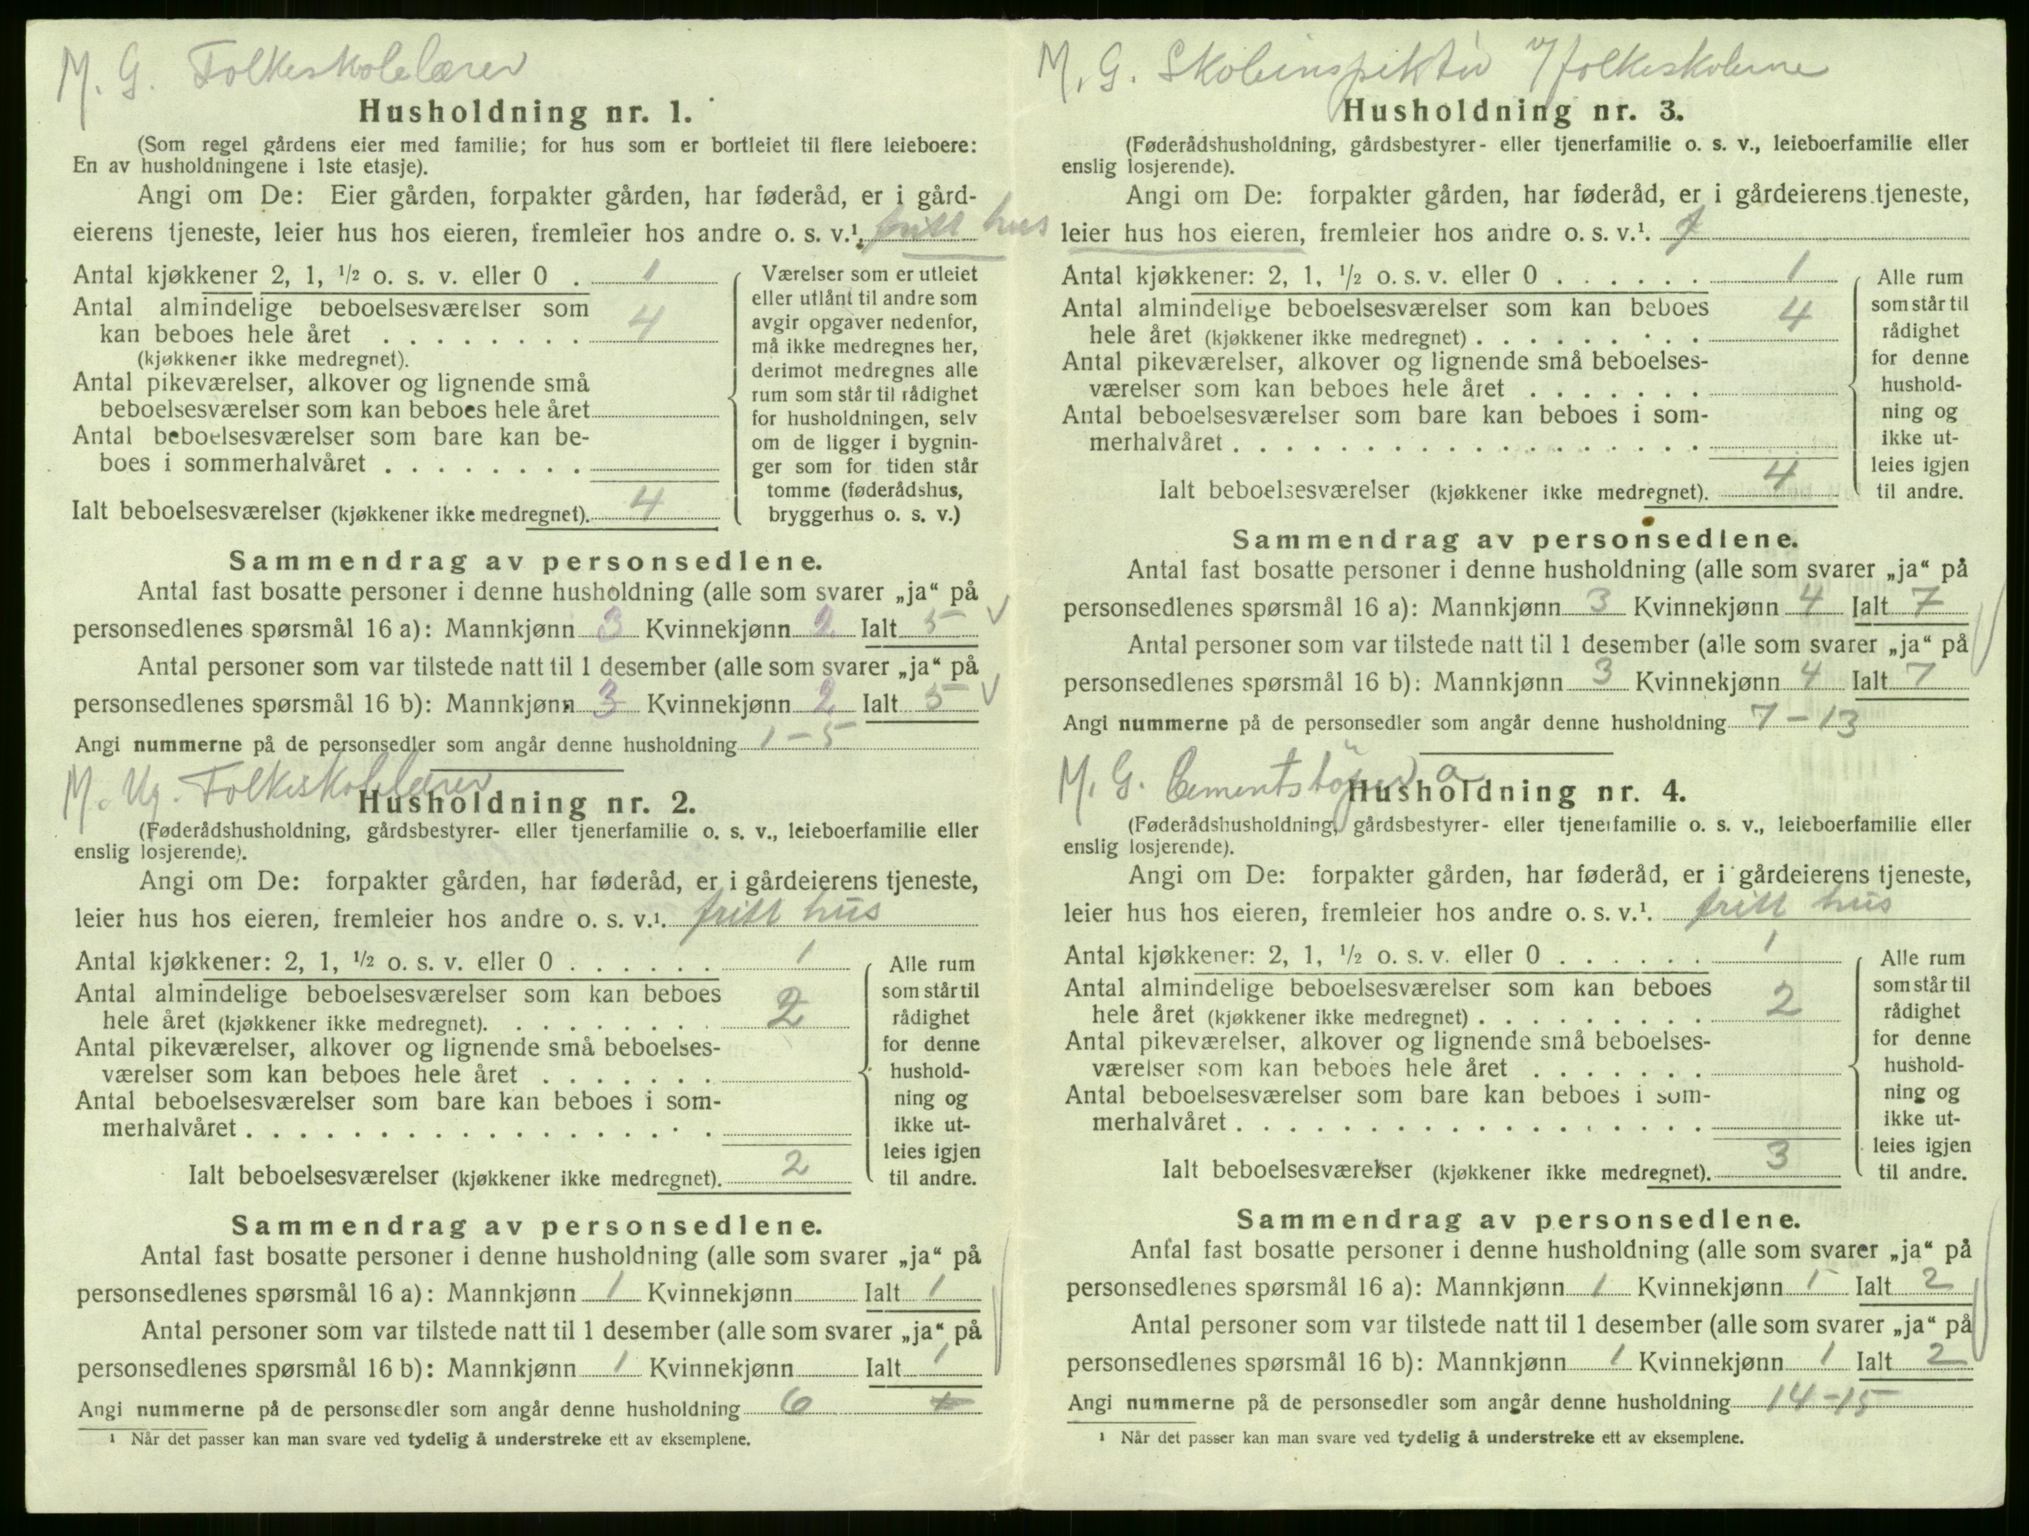 M. G. Folkeskolelærer
Husholdning nr. 1.
(Som regel gårdens eier med familie; for hus som er bortleiet til flere leieboere:
En av husholdningene i 1ste etasje).
Angi om De: Eier gården, forpakter gården, har føderåd, er i gård-
eierens tjeneste, leier hus hos eieren, fremleier hos andre o. s. v.¹. fritt hus
Antal kjøkkener 2, 1, ½ o. s. v. eller 0 . 1
Antal almindelige beboelsesværelser som
kan beboes hele året . . . . . . . . 4
(kjøkkener ikke medregnet).
Antal pikeværelser, alkover og lignende små
beboelsesværelser som kan beboes hele året
Antal beboelsesværelser som bare kan be-
boes i sommerhalvåret . . . . . . . .
Ialt beboelsesværelser (kjøkkener ikke medregnet). 4
Værelser som er utleiet
eller utlånt til andre som
avgir opgaver nedenfor,
må ikke medregnes her,
derimot medregnes alle
rum som står til rådighet
for husholdningen, selv
om de ligger i bygnin-
ger som for tiden står
tomme (føderådshus,
bryggerhus o. s. v.)
Sammendrag av personsedlene.
Antal fast bosatte personer i denne husholdning (alle som svarer „ja“ på
personsedlenes spørsmål 16 a): Mannkjønn 3 Kvinnekjønn 2 Ialt 5
Antal personer som var tilstede natt til 1 desember (alle som svarer „ja“ på
personsedlenes spørsmål 16 b): Mannkjønn 3 Kvinnekjønn 2 Ialt 5
Angi nummerne på de personsedler som angår denne husholdning 1 – 5
M. Ug. Folkeskolelærer
Husholdning nr. 2.
(Føderådshusholdning, gårdsbestyrer- eller tjenerfamilie o. s. v., leieboerfamilie eller
enslig losjerende).
Angi om De: forpakter gården, har føderåd, er i gårdeierens tjeneste,
leier hus hos eieren, fremleier hos andre o. s. v.¹. fritt hus
Antal kjøkkener: 2, 1, ½ o. s. v. eller 0 . . . . . . 1
Antal almindelige beboelsesværelser som kan beboes
hele året (kjøkkener ikke medregnet). . . . . . . . . 2
Antal pikeværelser, alkover og lignende små beboelses-
værelser som kan beboes hele året . . . . . . .
Antal beboelsesværelser som bare kan beboes i som-
merhalvåret . . . . . . . . . . . . . . . . . .
Ialt beboelsesværelser (kjøkkener ikke medregnet). 2
Alle rum
som står til
rådighet
for denne
hushold-
ning og
ikke ut-
leies igjen
til andre.
Sammendrag av personsedlene.
Antal fast bosatte personer i denne husholdning (alle som svarer „ja“ på
personsedlenes spørsmål 16 a): Mannkjønn 1 Kvinnekjønn Ialt 1
Antal personer som var tilstede natt til 1 desember (alle som svarer „ja“ på
personsedlenes spørsmål 16 b): Mannkjønn 1 Kvinnekjønn Ialt 1
Angi nummerne på de personsedler som angår denne husholdning 6
¹ Når det passer kan man svare ved tydelig å understreke ett av eksemplene.
M. G. Skoleinspektør v/folkeskolerne
Husholdning nr. 3.
(Føderådshusholdning, gårdsbestyrer- eller tjenerfamilie o. s. v., leieboerfamilie eller
enslig losjerende).
Angi om De: forpakter gården, har føderåd, er i gårdeierens tjeneste,
leier hus hos eieren, fremleier hos andre o. s. v.¹.
Antal kjøkkener: 2, 1, ½ o. s. v. eller 0 . . . . . . 1
Antal almindelige beboelsesværelser som kan beboes
hele året (kjøkkener ikke medregnet) . . . . . . . . . 4
Antal pikeværelser, alkover og lignende små beboelses-
værelser som kan beboes hele året . . . . . . .
Antal beboelsesværelser som bare kan beboes i som-
merhalvåret . . . . . . . . . . . . . . . . . .
Ialt beboelsesværelser (kjøkkener ikke medregnet). 4
Alle rum
som står til
rådighet
for denne
hushold-
ning og
ikke ut-
leies igjen
til andre.
Sammendrag av personsedlene.
Antal fast bosatte personer i denne husholdning (alle som svarer „ja“ på
personsedlenes spørsmål 16 a): Mannkjønn 3 Kvinnekjønn 4 Ialt 7
Antal personer som var tilstede natt til 1 desember (alle som svarer „ja“ på
personsedlenes spørsmål 16 b): Mannkjønn 3 Kvinnekjønn 4 Ialt 7
Angi nummerne på de personsedler som angår denne husholdning 7 – 13
M. G. Cementstöper a
Husholdning nr. 4.
(Føderådshusholdning, gårdsbestyrer- eller tjenerfamilie o. s. v., leieboerfamilie eller
enslig losjerende).
Angi om De: forpakter gården, har føderåd, er i gårdeierens tjeneste,
leier hus hos eieren, fremleier hos andre o. s. v.¹. fritt hus
Antal kjøkkener: 2, 1, ½ o. s. v. eller 0 . . . . . . 1
Antal almindelige beboelsesværelser som kan beboes
hele året (kjøkkener ikke medregnet) . . . . . . . . . 2
Antal pikeværelser, alkover og lignende små beboelses-
værelser som kan beboes hele året . . . . . . .
Antal beboelsesværelser som bare kan beboes i som-
merhalvåret . . . . . . . . . . . . . . . . . .
Ialt beboelsesværelser (kjøkkener ikke medregnet). 3
Alle rum
som står til
rådighet
for denne
hushold-
ning og
ikke ut-
leies igjen
til andre.
Sammendrag av personsedlene.
Antal fast bosatte personer i denne husholdning (alle som svarer „ja“ på
personsedlenes spørsmål 16 a): Mannkjønn 1 Kvinnekjønn 1 Ialt 2
Antal personer som var tilstede natt til 1 desember (alle som svarer „ja“ på
personsedlenes spørsmål 16 b): Mannkjønn 1 Kvinnekjønn 1 Ialt 2
Angi nummerne på de personsedler som angår denne husholdning 14–15
¹ Når det passer kan man svare ved tydelig å understreke ett av eksemplene.